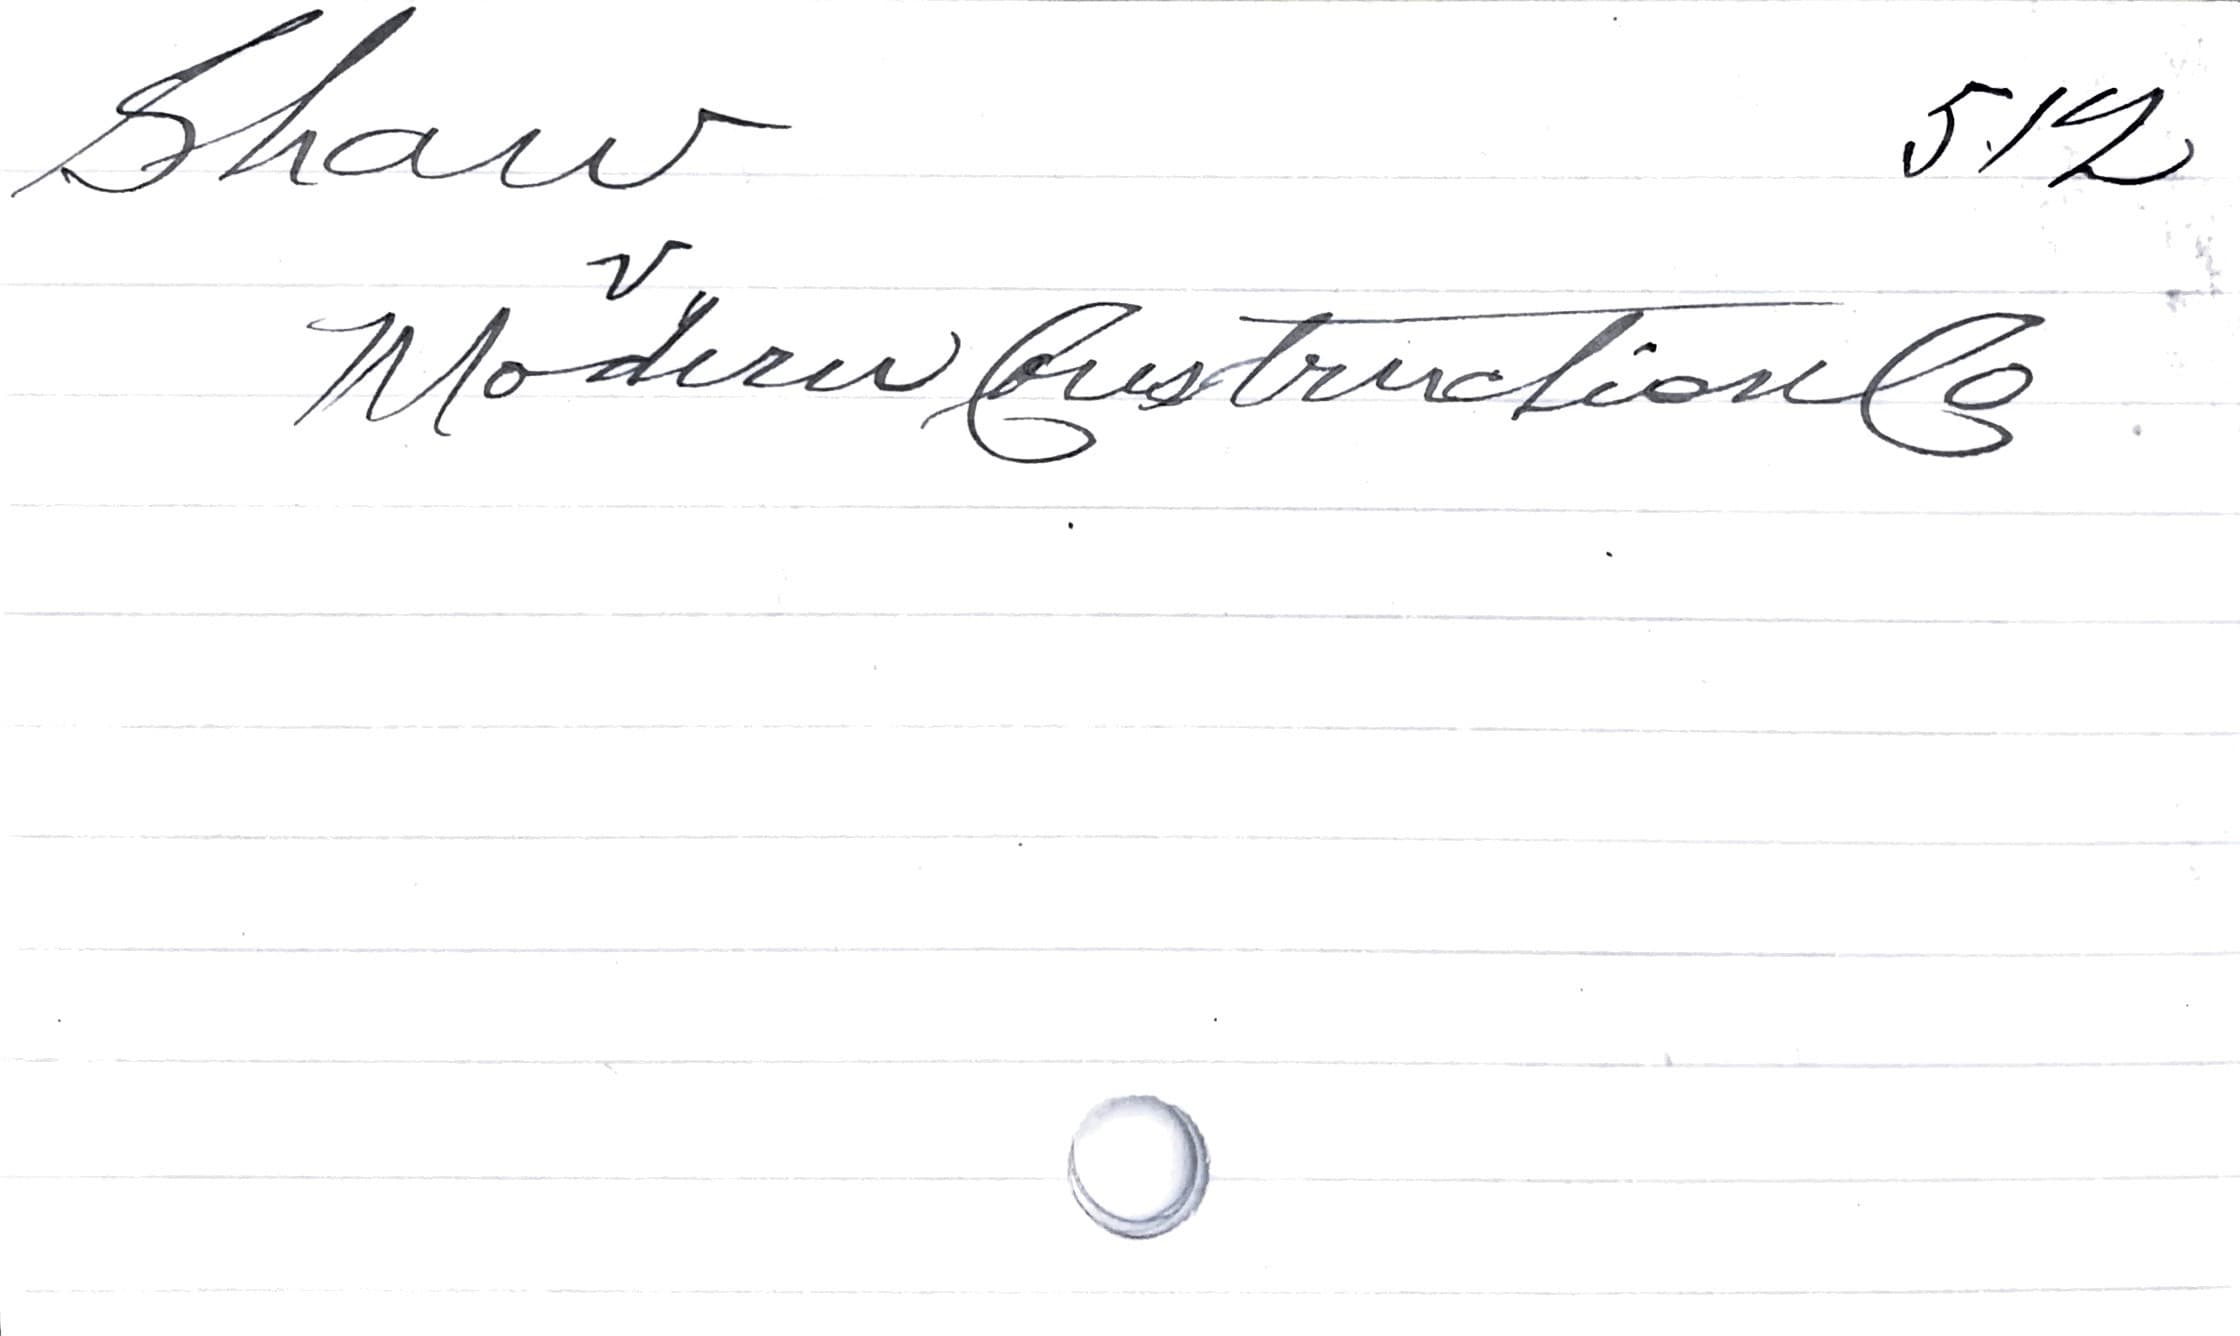 Shaw 512
v
Modern Construction Co